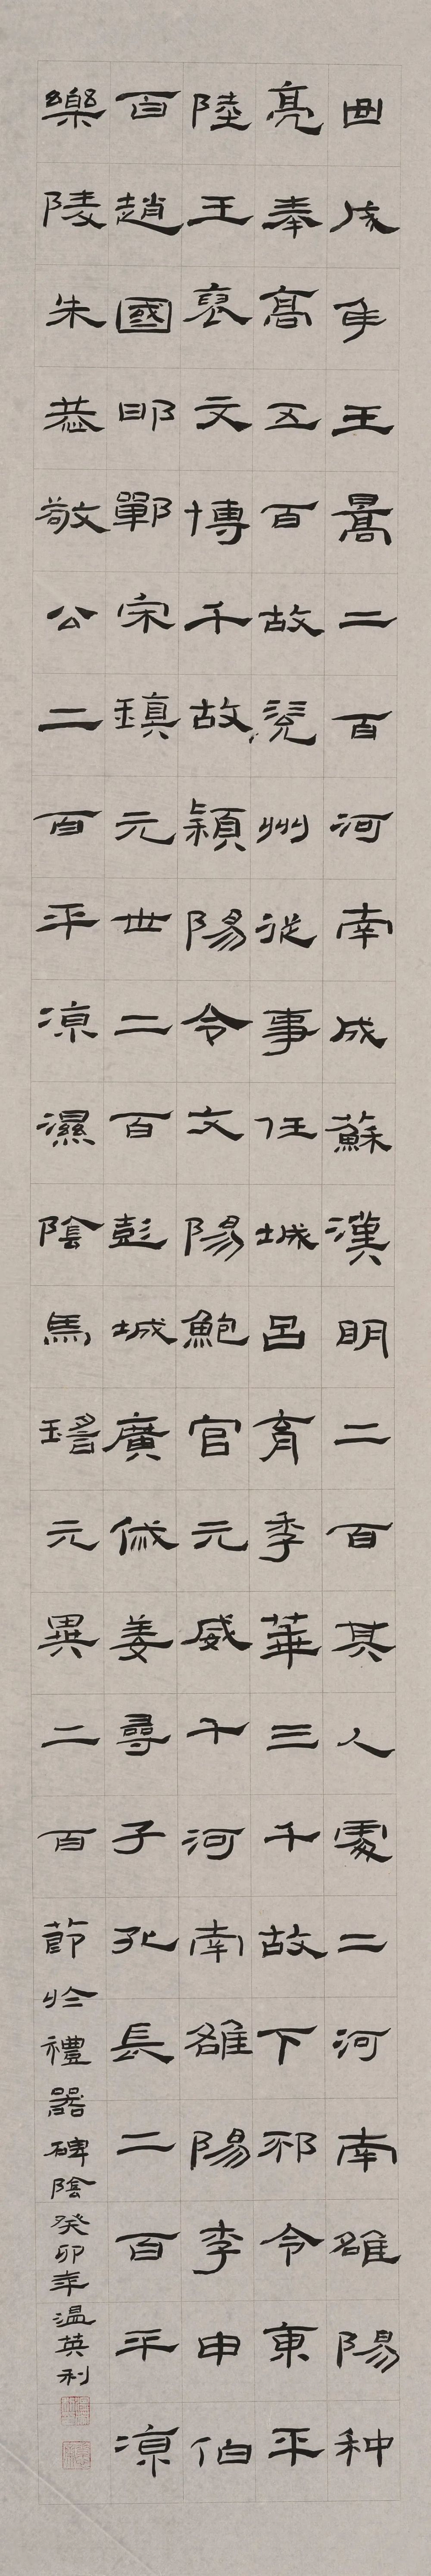 曲成年王暠二百河南成蘇漢明二百其人處二河南雒陽种
亮奉高五百故兗州從事任城呂育季華三千故下邳令東平
陸王褒文博千故潁陽令文陽鮑官元威千河南雒陽李申伯
百趙國邯鄲宋瑱元世二百彭城廣戚姜尋子孔長二百平凉
樂陵朱恭敬公二百平凉濕陰馬瑤元異二百節於禮器碑陰癸卯年温英利